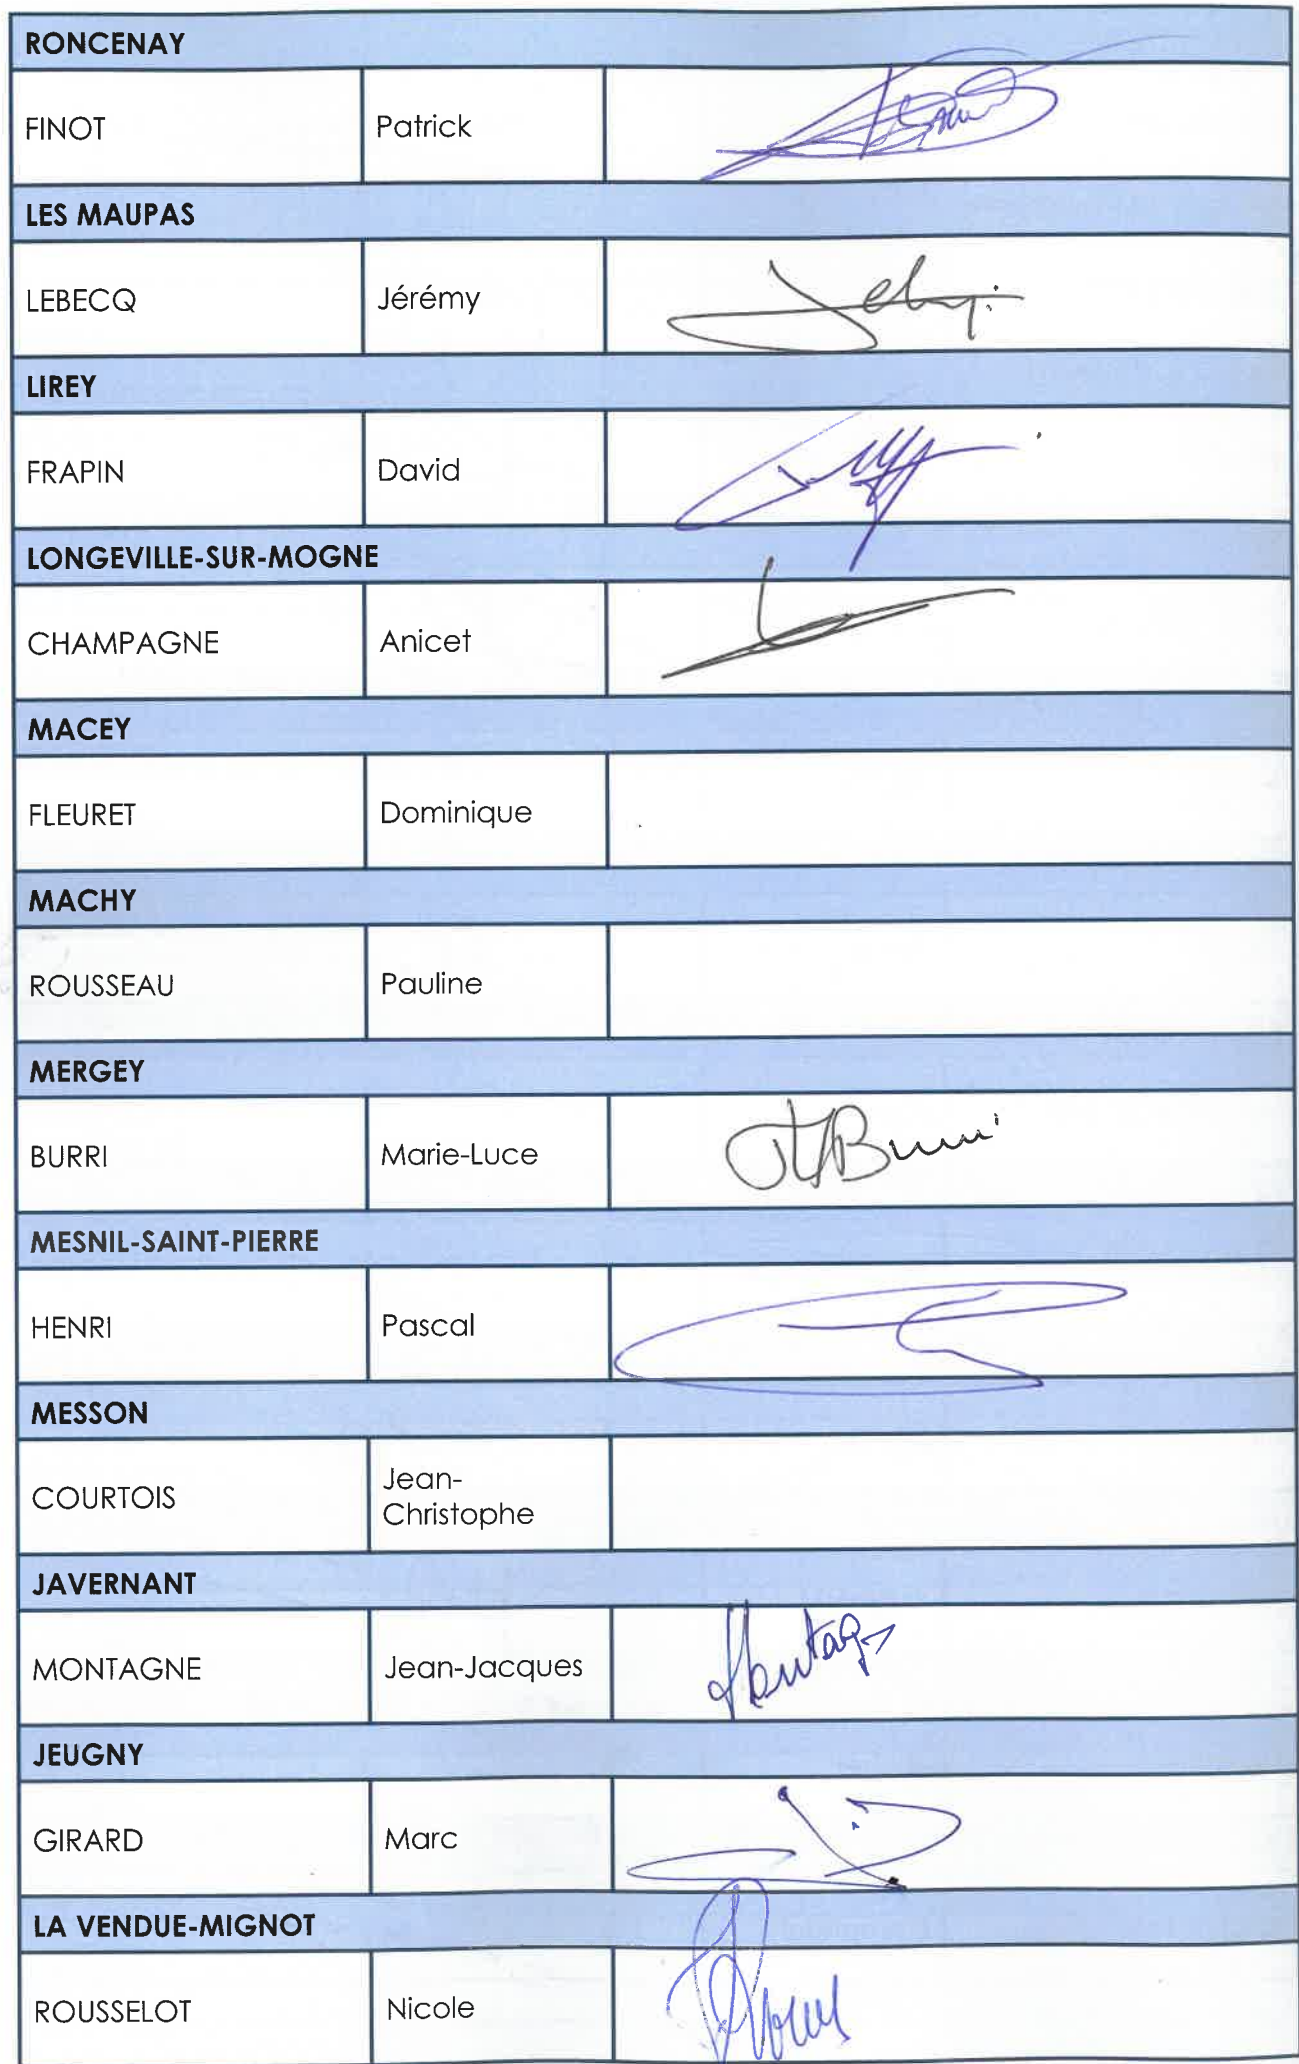 RONCENAY
FINOT Patrick
LES MAUPAS
LEBECQ Jérémy
LIREY
FRAPIN David
LONGEVILLE-SUR-MOGNE
CHAMPAGNE Anicet
MACEY
FLEURET Dominique
MACHY
ROUSSEAU Pauline
MERGEY
BURRI Marie-Luce
MESNIL-SAINT-PIERRE
HENRI Pascal
MESSON
COURTOIS Jean-
Christophe
JAVERNANT
MONTAGNE Jean-Jacques
JEUGNY
GIRARD Marc
LA VENDUE-MIGNOT
ROUSSELOT Nicole